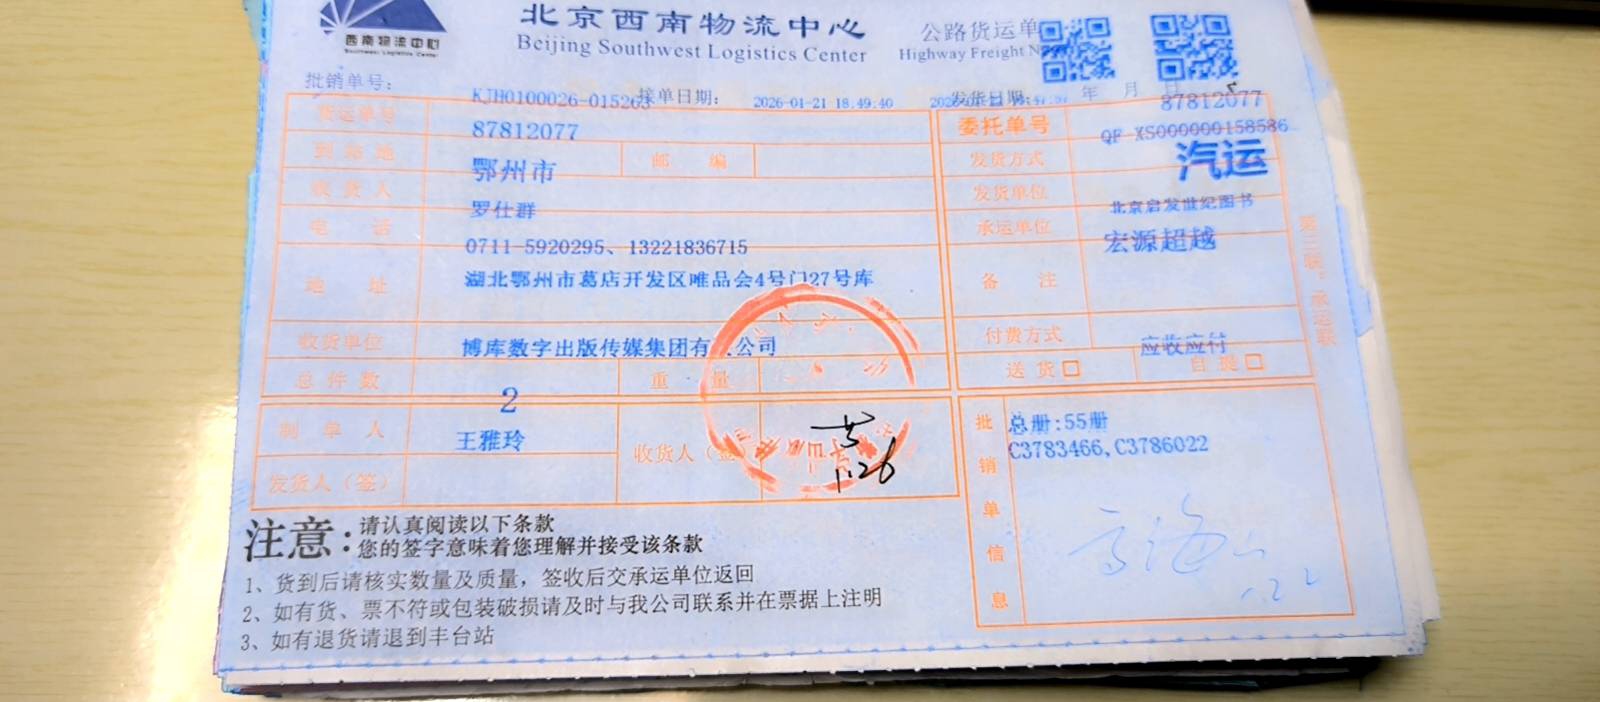 西南物流中心
Southwest Logistics Center
北京西南物流中心
Beijing Southwest Logistics Center
公路货运单
Highway Freight
批销单号：
KJH0100026-015263
接单日期：
2026-01-21 18.49.40
发货日期：
年 月 日
87812077
货运单号
87812077
委托单号
QF-XS000000158586
到站地
鄂州市
邮 编
发货方式
汽运
收货人
罗仕群
发货单位
北京启发世纪图书
电 话
0711-5920295、13221836715
承运单位
宏源超越
地 址
湖北鄂州市葛店开发区唯品会4号门27号库
备 注
收货单位
博库数字出版传媒集团有 公司
付费方式
应收应付
总件数
2
重 量
送货□
自提□
制单人
王雅玲
收货人（签）
共
1.26
发货人（签）
批销单信息
总册:55册
C3783466,C3786022
1.22
第三联：承运联
注意：
请认真阅读以下条款
您的签字意味着您理解并接受该条款
1、货到后请核实数量及质量，签收后交承运单位返回
2、如有货、票不符或包装破损请及时与我公司联系并在票据上注明
3、如有退货请退到丰台站